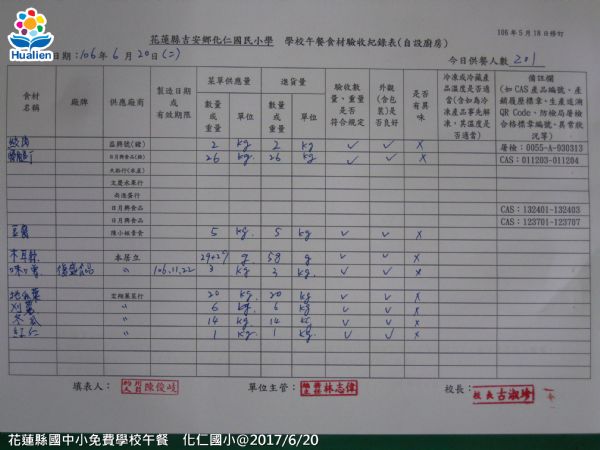 106年5月18日修訂
Hualien
花蓮縣吉安鄉化仁國民小學 學校午餐食材驗收紀錄表(自設廚房)
日期：106年6月20日(二) 今日供餐人數 201
食材名稱 廠牌 供應廠商 製造日期或有效期限 菜單供應量 進貨量 驗收數量、重量是否符合規定 外觀(含包裝)是否良好 是否有異味 冷凍或冷藏產品溫度是否適當(含如為冷凍產品事先解凍，其溫度是否適當) 備註欄(如CAS產品編號、產銷履歷標章、生產追溯QR Code、防檢局屠檢合格標章編號、異常狀況等)
數量或重量 單位 數量或重量 單位
絞肉 益興號(豬) 2 kg 2 kg ✓ ✓ x 屠檢：0055-A-930313
日月興食品(雞) 26 kg. 26 kg. ✓ ✓ x CAS：011203-011204
文慶水果行
尚進蛋行
日月興食品 CAS：132401-132403
日月興食品 CAS：123701-123707
豆腐 陳小姐素食 5 kg 5 kg ✓ ✓ x
木耳絲 本居立 29+29 g 58 g ✓ ✓ x
味噌 〃 106.11.22 3 kg 3 kg ✓ ✓ x
地瓜葉 宏翔蔬菜行 20 kg 20 kg ✓ ✓ x
刈薯 〃 6 kg 6 kg ✓ ✓ x
冬瓜 〃 14 kg 14 kg ✓ ✓ x
〃 1 kg 1 kg ✓ ✓ x
填表人： 陳俊岐 單位主管： 林志偉 校長： 校長古淑珍
花蓮縣國中小免費學校午餐 化仁國小@2017/6/20